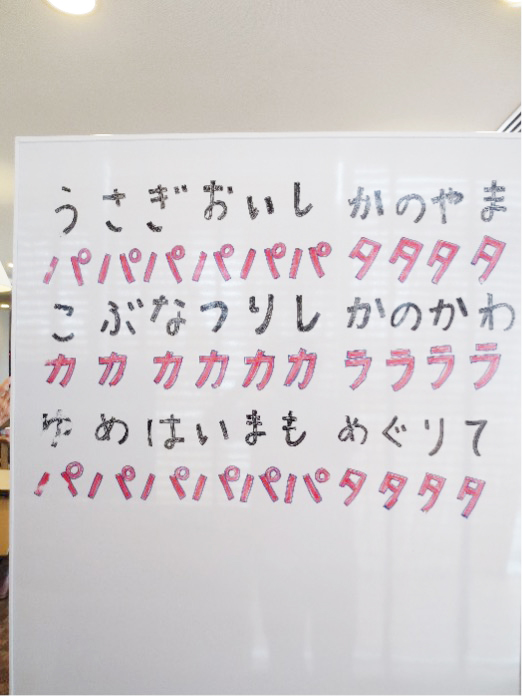 うさぎおいし かのやま
パパパパパパ タタタタ
こぶなつりし かのかわ
カカカカカカ ララララ
ゆめはいまも めぐりて
パパパパパパ タタタタ